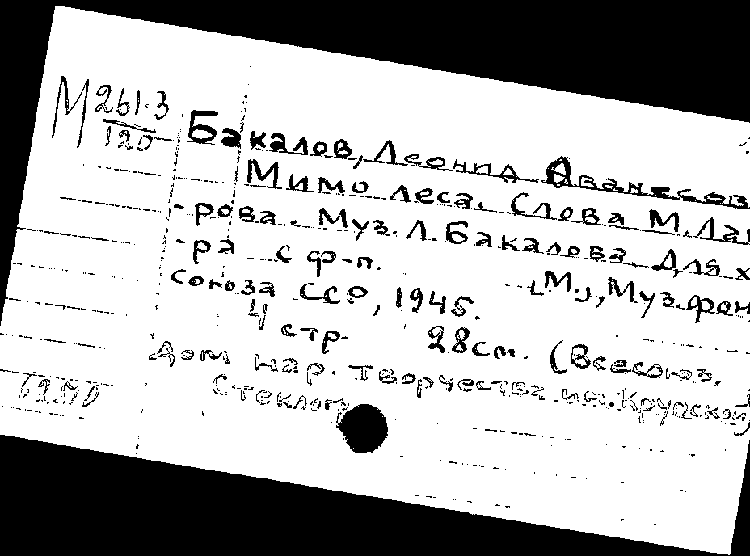 М 261-3
120
Бакалов, Леонид Аванесов
Мимо леса. Слова М. Ла
-рова. Муз. Л. Бакалова. Для х
-ра с ф-п. [М.], Муз. фон
союза ССР, 1945.
4 стр. 28 см. (Всесоюз.
Дом нар. творчества им. Крупской)
Стеклогр